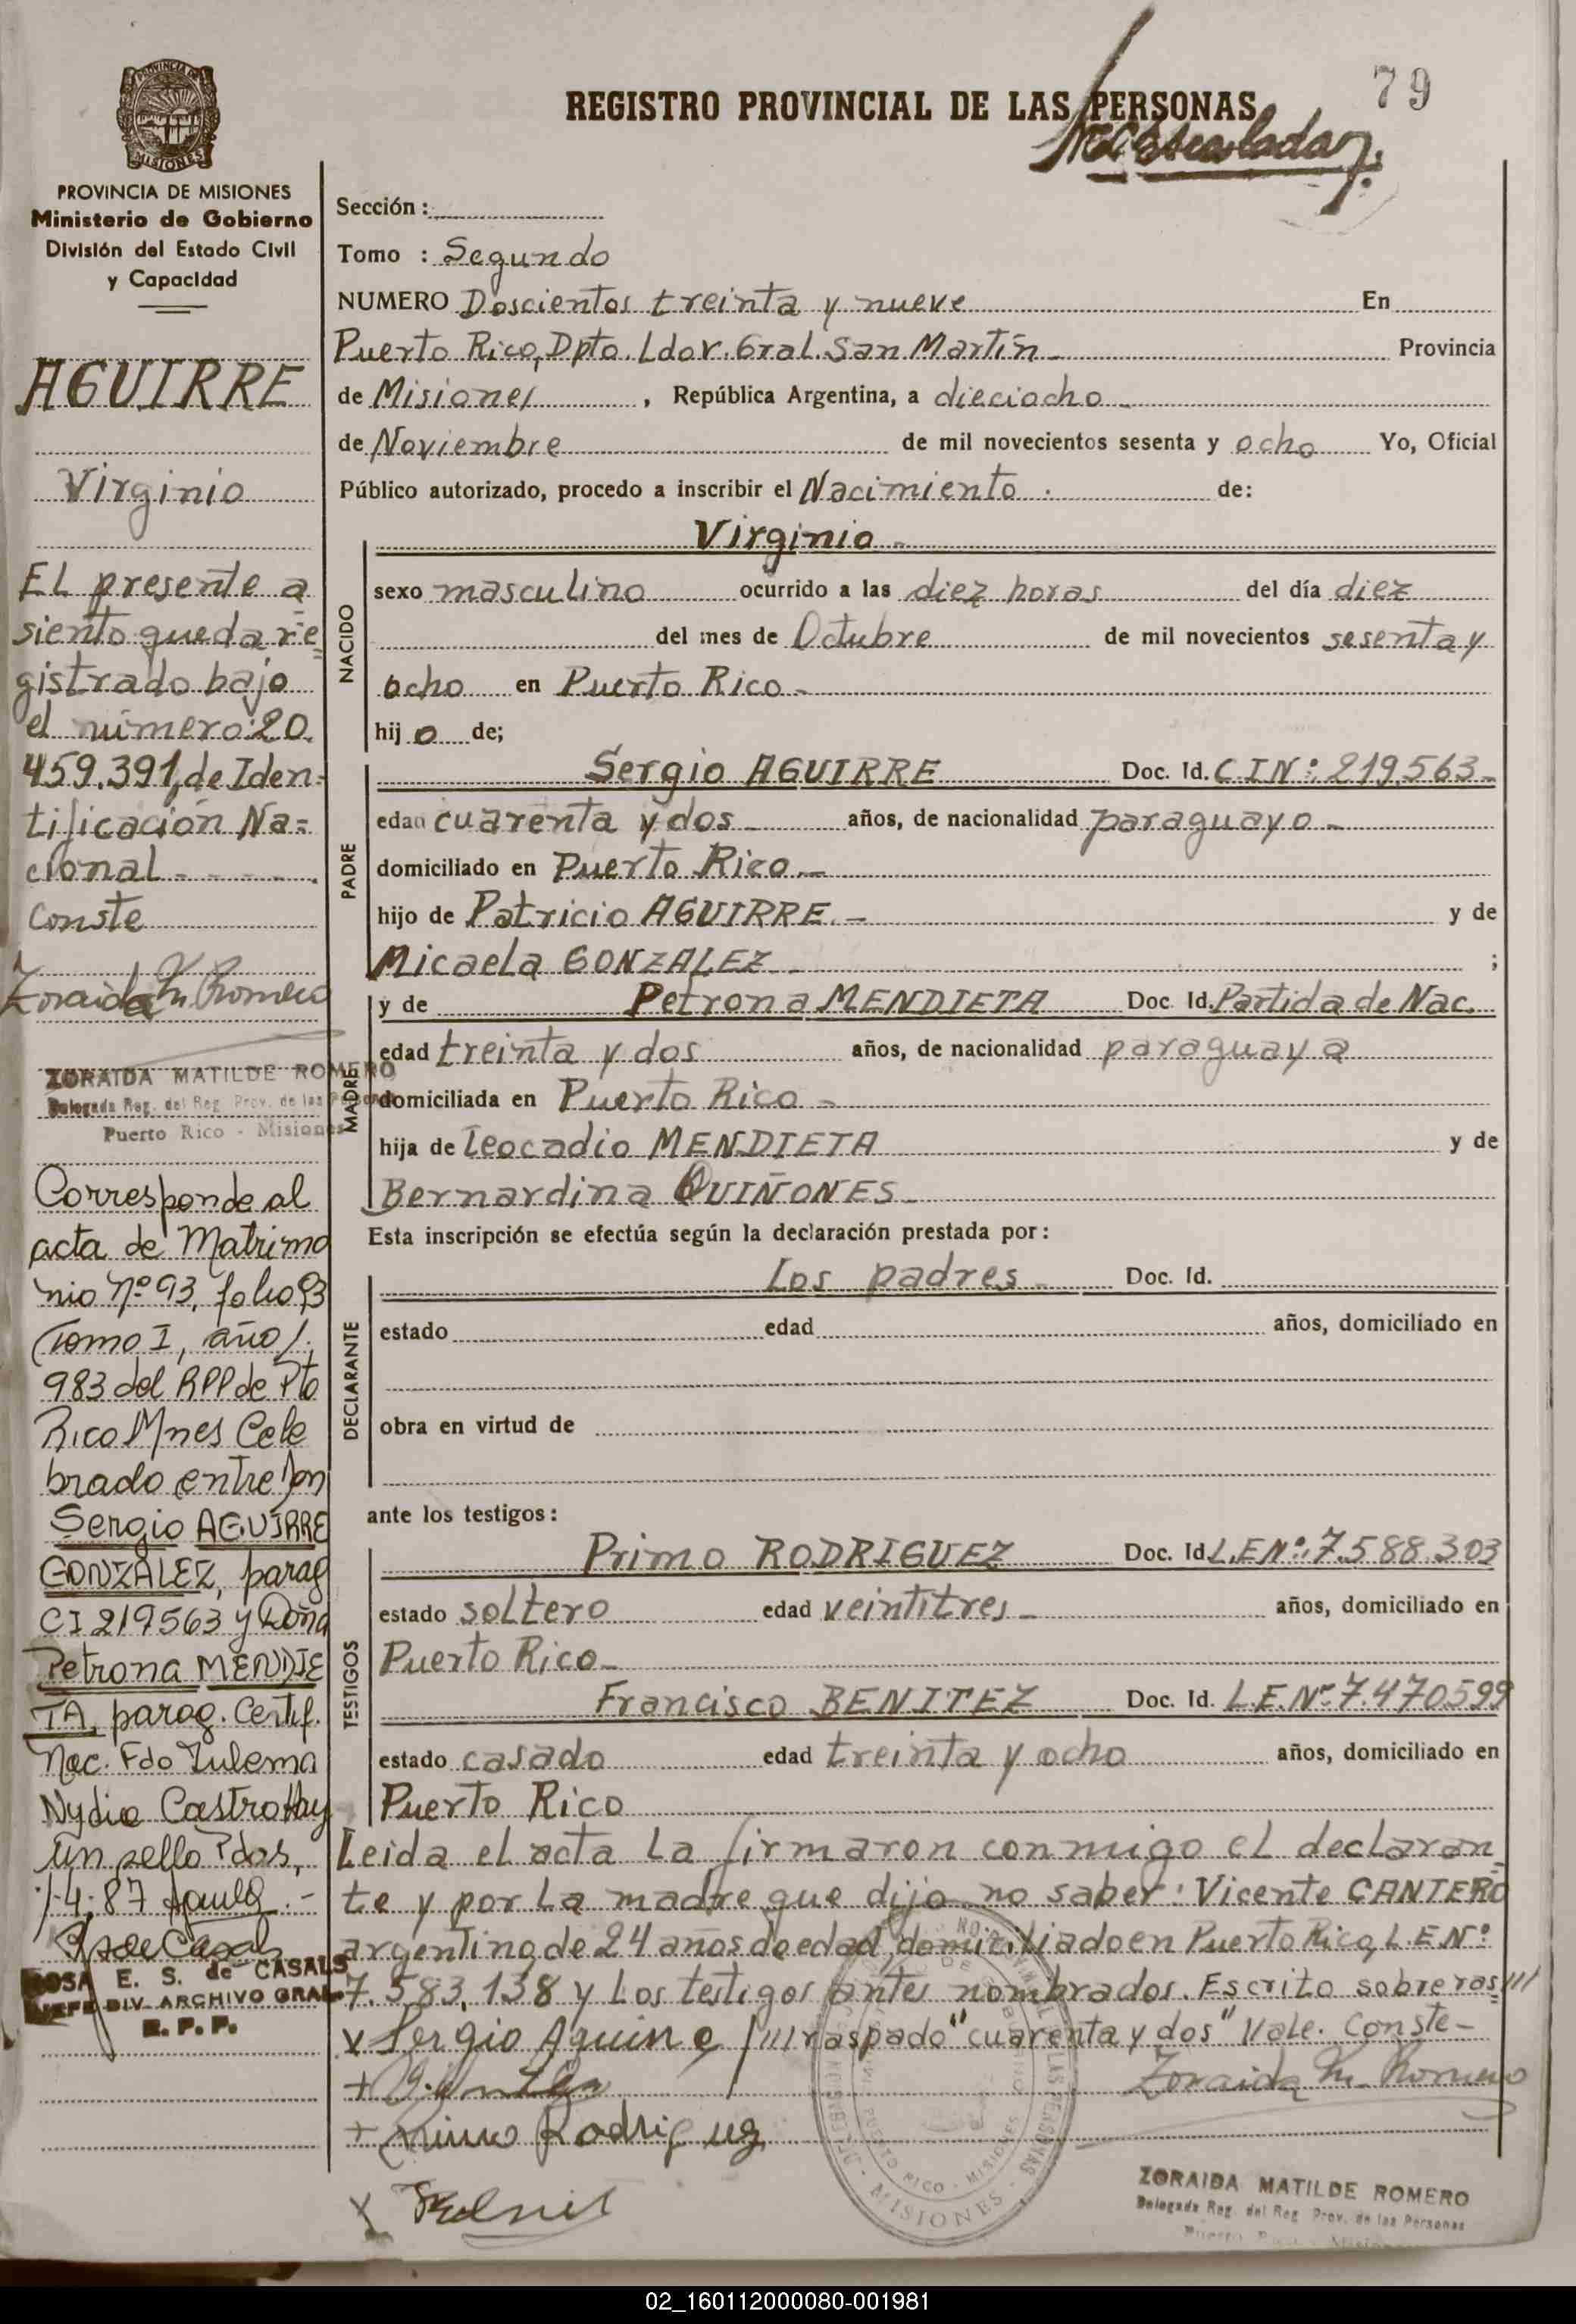 79
REGISTRO PROVINCIAL DE LAS PERSONAS
PROVINCIA DE MISIONES
Ministerio de Gobierno
División del Estado Civil
y Capacidad
AGUIRRE
Virginio
EL presente a
siento queda re
gistrado bajo
el número: 20.
459.391, de Iden-
tificación Na=
cional - - - - .
Conste
Zoraida M. Romero
ZORAIDA MATILDE ROMERO
Delegada Reg. del Reg. Prov. de las Personas
Puerto Rico - Misiones
Corresponde al
acta de Matrimo
nio Nº 93, folio 93
Tomo I, año 1.
983 del RPP de Pto
Rico Mnes Cele
brado entre Don
Sergio AGUIRRE
GONZALEZ, parag
CI 219563 y Doña
Petrona MENDIE
TA, parag. Certif.
Nac. Fdo Zulema
Nydia Castro Hay
un sello Pdas,
1-4-87
ROSA E. S. de CASALS
JEFE DIV. ARCHIVO GRAL.
R. P. P.
Sección :
Tomo : Segundo
NUMERO Doscientos treinta y nueve En
Puerto Rico, Dpto. Ldor. Gral. San Martín - Provincia
de Misiones , República Argentina, a dieciocho -
de Noviembre de mil novecientos sesenta y ocho Yo, Oficial
Público autorizado, procedo a inscribir el Nacimiento . de:
NACIDO
Virginio -
sexo masculino ocurrido a las diez horas del día diez
del mes de Octubre de mil novecientos sesenta y
ocho en Puerto Rico -
hij o de;
PADRE
Sergio AGUIRRE Doc. Id. C.I.Nº: 219.563 -
edad cuarenta y dos - años, de nacionalidad paraguayo -
domiciliado en Puerto Rico. -
hijo de Patricio AGUIRRE. - y de
Micaela GONZALEZ - ;
MADRE
y de Petrona MENDIETA Doc. Id. Partida de Nac.
edad treinta y dos años, de nacionalidad paraguaya
domiciliada en Puerto Rico -
hija de Leocadio MENDIETA y de
Bernardina QUIÑONES -
Esta inscripción se efectúa según la declaración prestada por:
DECLARANTE
Los padres - Doc. Id.
estado edad años, domiciliado en
obra en virtud de
ante los testigos:
TESTIGOS
Primo RODRIGUEZ Doc. Id. L.E.Nº: 7.588.303
estado soltero edad veintitres - años, domiciliado en
Puerto Rico -
Francisco BENITEZ Doc. Id. L.E.Nº 7.470.599
estado casado edad treinta y ocho años, domiciliado en
Puerto Rico
Leida el acta La firmaron conmigo el declaran
te y por La madre que dijo no saber: Vicente CANTERO
argentino, de 24 años de edad, domiciliado en Puerto Rico, L.E.Nº
7.583.138 y Los testigos antes nombrados. Escrito sobre ras///
x Sergio Aguirre ///raspado "cuarenta y dos" Vale. Conste -
Zoraida M. Romero
+ Primo Rodriguez
ZORAIDA MATILDE ROMERO
Delegada Reg. del Reg. Prov. de las Personas
02_160112000080-001981